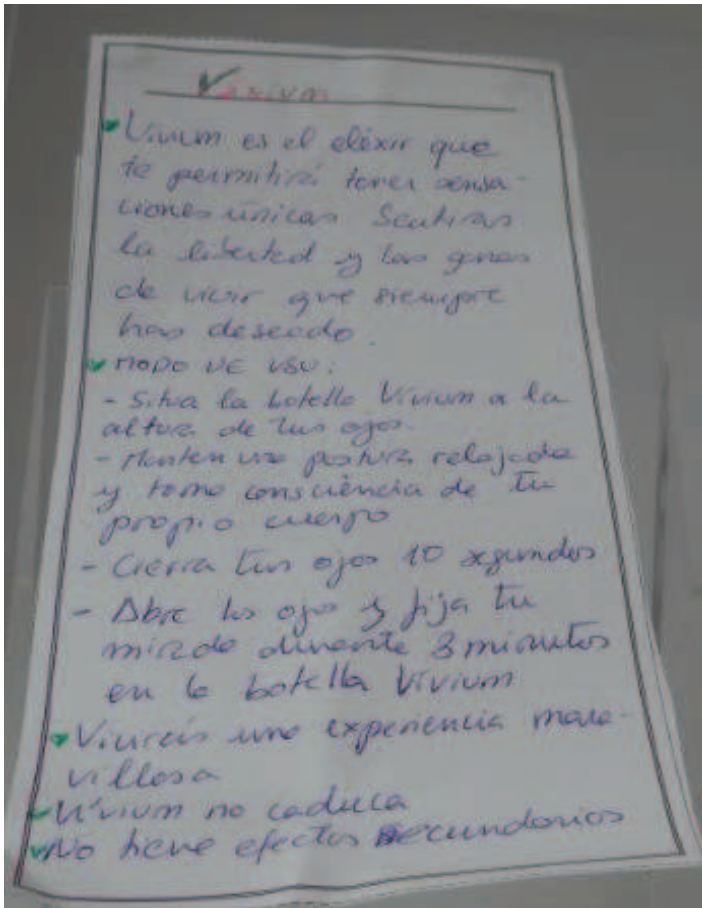 Vivium
Vivium es el eléxir que
te permitirá tener sensa-
ciones únicas Sentiras
la libertad y las ganas
de vivir que siempre
has deseado.
MODO DE USO:
- Situa la botella Vivium a la
altura de tus ojos.
- Manten una postura relajada
y toma consciència de tu
propio cuerpo
- Cierra tus ojos 10 segundos
- Abre los ojos y fija tu
mirada durante 3 minutos
en la botella Vivium
Vivirás una experiencia mara-
villosa
Vivium no caduca
No tiene efectos secundarios